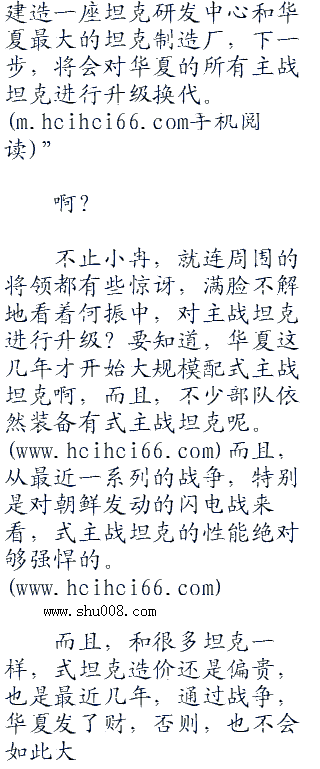 建造一座坦克研发中心和华
夏最大的坦克制造厂，下一
步，将会对华夏的所有主战
坦克进行升级换代。
(m.hcihci66.com手机阅
读)”
啊？
不止小冉，就连周围的
将领都有些惊讶，满脸不解
地看着何振中，对主战坦克
进行升级？要知道，华夏这
几年才开始大规模配式主战
坦克啊，而且，不少部队依
然装备有式主战坦克呢。
(www.hcihci66.com)而且，
从最近一系列的战争，特别
是对朝鲜发动的闪电战来
看，式主战坦克的性能绝对
够强悍的。
(www.hcihci66.com)
www.shu008.com
而且，和很多坦克一
样，式坦克造价还是偏贵，
也是最近几年，通过战争，
华夏发了财，否则，也不会
如此大